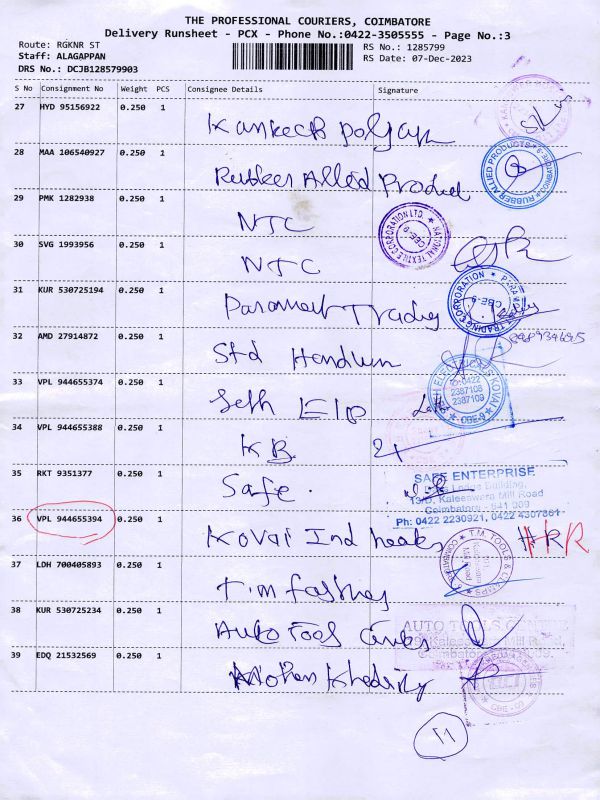 THE PROFESSIONAL COURIERS, COIMBATORE
Delivery Runsheet - PCX - Phone No.:0422-3505555 - Page No.:3
Route: RGKNR ST
Staff: ALAGAPPAN
DRS No.: DCJB128579903
RS No.: 1285799
RS Date: 07-Dec-2023
S No Consignment No Weight PCS Consignee Details Signature
27 HYD 95156922 0.250 1
28 MAA 106540927 0.250 1
Rubber Allied Product
RUBBER ALLIED PRODUCTS
29 PMK 1282938 0.250 1
NTC
NATIONAL TEXTILE CORPORATION LTD.
CBE-9
30 SVG 1993956 0.250 1
NTC
31 KUR 530725194 0.250 1
Paramount Trading
TRADING CORPORATION
CBE-9
32 AMD 27914872 0.250 1
Std Handlum
33 VPL 944655374 0.250 1
Seth Ele
0422
2387108
2387109
CBE-9
34 VPL 944655388 0.250 1
KB
35 RKT 9351377 0.250 1
Safe.
SAFE ENTERPRISE
Lodge Building,
13/D, Kaleeswara Mill Road
Coimbatore - 641 009
Ph: 0422 2230921, 0422 4307861
36 VPL 944655394 0.250 1
Kovai Ind
37 LDH 700405893 0.250 1
T.M. TOOLS & CLAMPS
38 KUR 530725234 0.250 1
Auto Tools
AUTO TOOLS CENTRE
39 EDQ 21532569 0.250 1
Mohan
CBE - 09